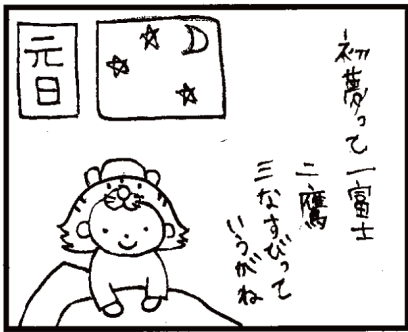 初夢って一富士
二鷹
三なすびって
いうがね
元日